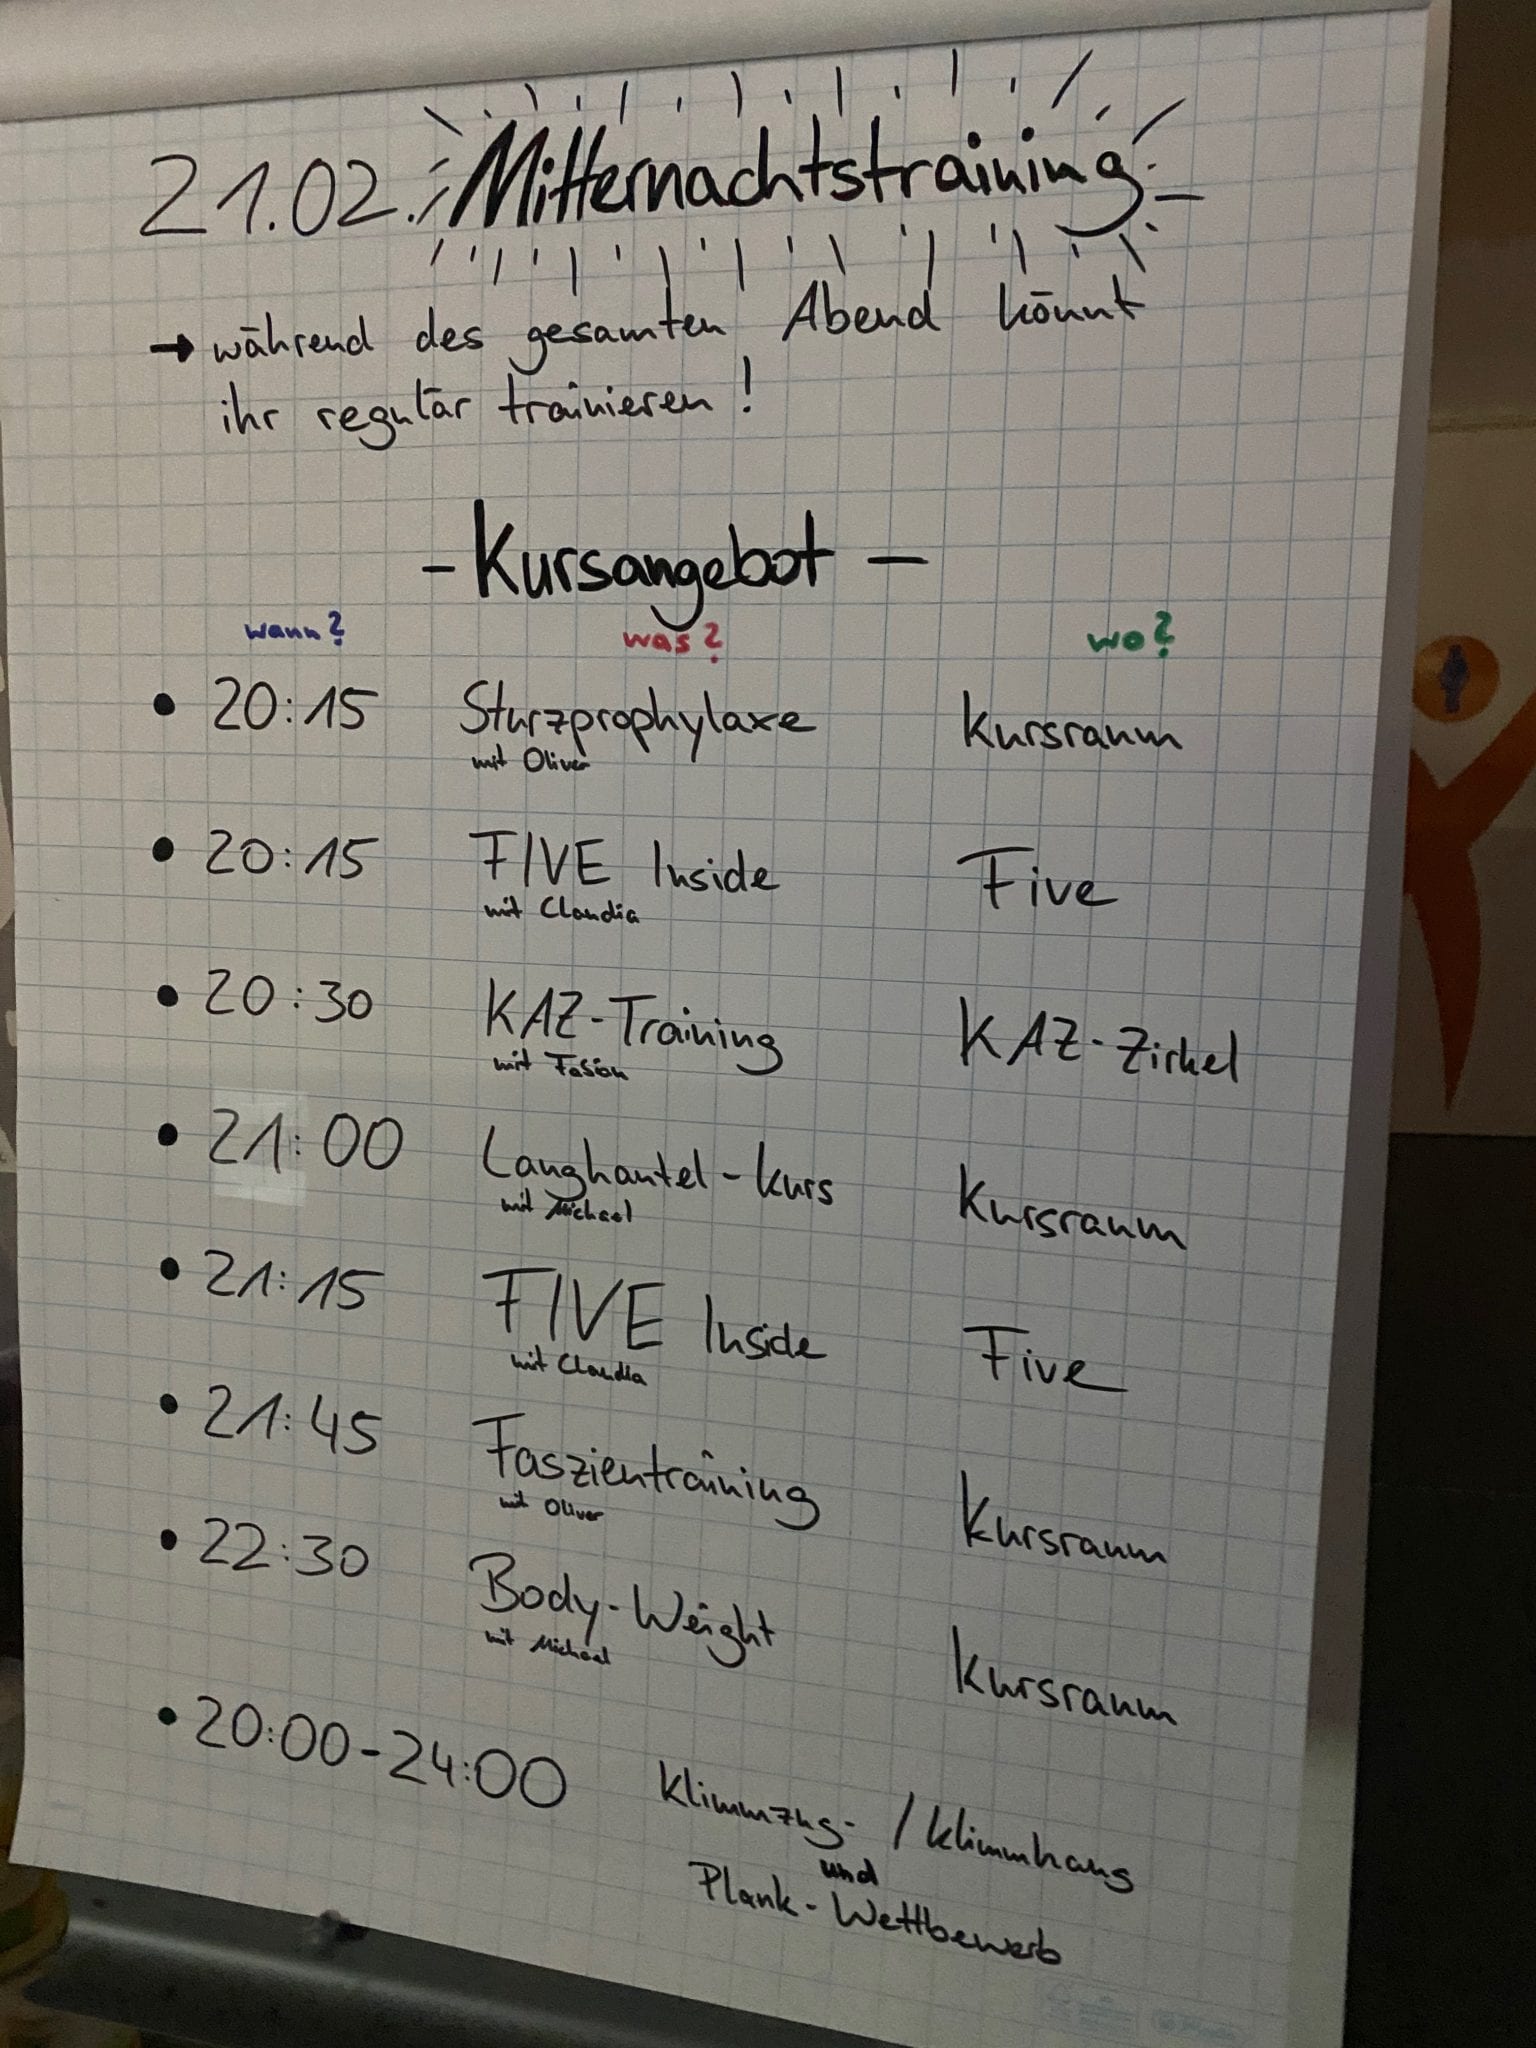 21.02. Mitternachtstraining
→ während des gesamten Abend könnt
ihr regulär trainieren!
- Kursangebot -
wann? was? wo?
• 20:15 Sturzprophylaxe Kursraum
mit Oliver
• 20:15 FIVE Inside Five
mit Claudia
• 20:30 KAZ-Training KAZ-Zirkel
mit Fabian
• 21:00 Langhantel-Kurs Kursraum
mit Michael
• 21:15 FIVE Inside Five
mit Claudia
• 21:45 Faszientraining Kursraum
mit Oliver
• 22:30 Body-Weight Kursraum
mit Michael
• 20:00-24:00 Klimmzug- / Klimmhang
und
Plank-Wettbewerb